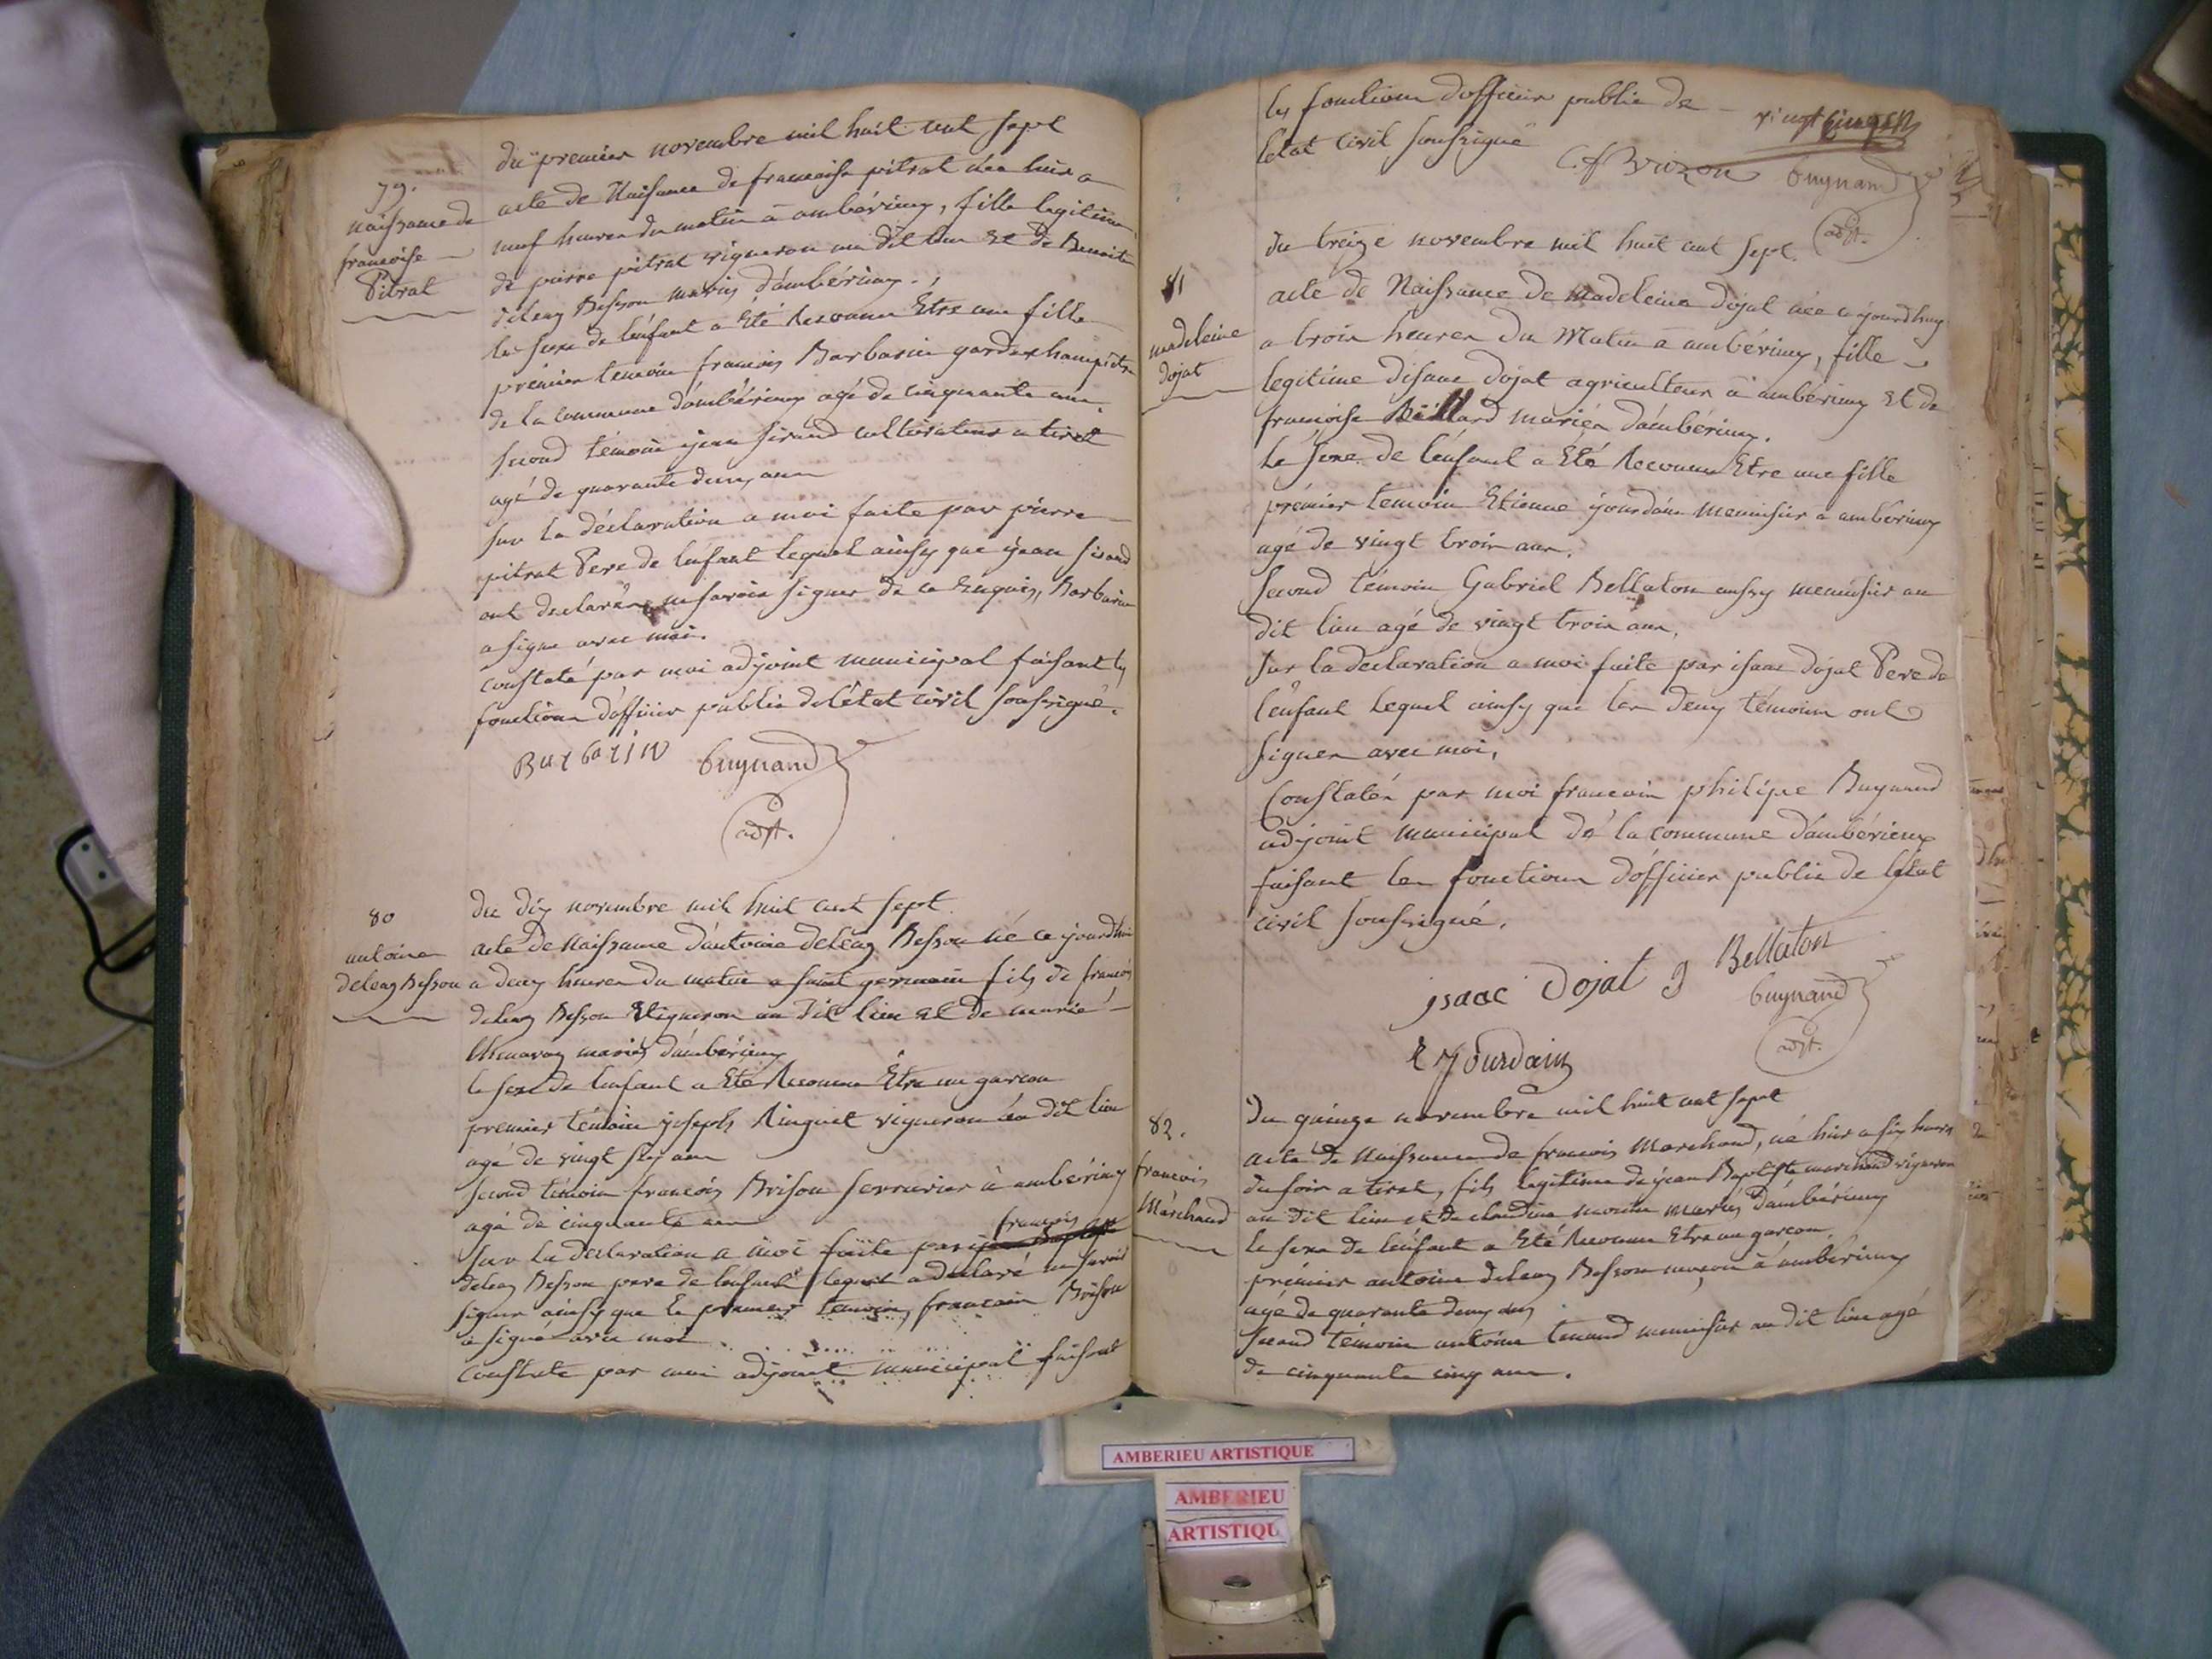 du premier novembre mil huit cent sept
79.
naissance de
francoise
Pitrat
acte de Naissance de francoise pitrat née hier a
neuf heures du matin a ambérieux, fille legitime
de pierre pitrat vigneron au dit lieu et de Benoite
deleaz Besson mariés d'ambérieux.
le sexe de l'enfant a Eté Reconnu Etre une fille
prémier temoin francois Barbarin garde champêtre
de la commune d'ambérieux agé de cinquante ans.
second témoin jean sirand cultivateur a tiret
agé de quarante deux ans
sur la déclaration a moi faite par pierre
pitrat Pere de l'enfant lequel ainsy que jean sirand
ont declarés ne savoir signer de ce Enquis, Barbarin
a signe avec moi.
constaté par moi adjoint municipal faisant les
fonctions d'officier public de l'état civil soussigné.
Barbarin buynand
adjt.
80
antoine
deleaz Besson
du dix novembre mil huit cent sept
acte de Naissance d'antoine deleaz Besson né ce jourd'hui
a deux heures du matin a saint germain fils de francois
deleaz Besson Vigneron au dit lieu et de marie
mariés d'ambérieux
le sexe de l'enfant a Eté Reconnu Etre un garcon
premier témoin joseph Ringuet vigneron au dit lieu
agé de vingt six ans
second témoin francois Brison serrurier à ambérieux
agé de cinquante ans
francois
sur la declaration a moi faite par jean Baptiste
deleaz Besson pere de l'enfant lequel a declaré ne savoir
signer ainsy que le premier temoin, francois Brison
a signé avec moi
constaté par moi adjoint municipal faisant
les fonctions d'officier public de
vingt cinq
létat civil soussigné
C. f Brizon buynand
adjt.
81
madeleine
dojat
du treize novembre mil huit cent sept.
acte de Naissance de madeleine dojat née ce jourdhuy
a trois heures du Matin a ambérieux, fille
legitime d'isaac dojat agriculteur a ambérieux et de
francoise Billard mariés d'ambérieux.
Le sexe de l'enfant a Eté Reconnu Etre une fille
prémier temoin Etienne jourdain menuisier a ambérieux
agé de vingt trois ans.
second témoin Gabriel Bellaton aussy menuisier au
dit lieu agé de vingt trois ans.
sur la declaration a moi faite par isaac dojat Pere de
l'enfant lequel ainsy que les deux témoins ont
signer avec moi,
Constatés par moi francois philipe Buynand
adjoint municipal de la commune d'ambérieux
faisant les fonctions d'officier public de létat
civil soussigné.
isaac Dojat g Bellaton
buynand
adjt.
E jourdain
82.
francois
Marchand
Du quinze novembre mil huit cent sept
acte de Naissance de francois Marchand, né hier a six heures
du soir a tiret, fils legitime de jean Baptiste marchand vigneron
au dit lieu et de claudine mariés d'ambérieux
le sexe de l'enfant a Eté Reconnu Etre un garcon
prémier antoine deleaz Besson macon à ambérieux
agé de quarante deux ans
second témoin antoine tenand menuisier au dit lieu agé
de cinquante cinq ans.
AMBERIEU ARTISTIQUE
AMBERIEU
ARTISTIQU